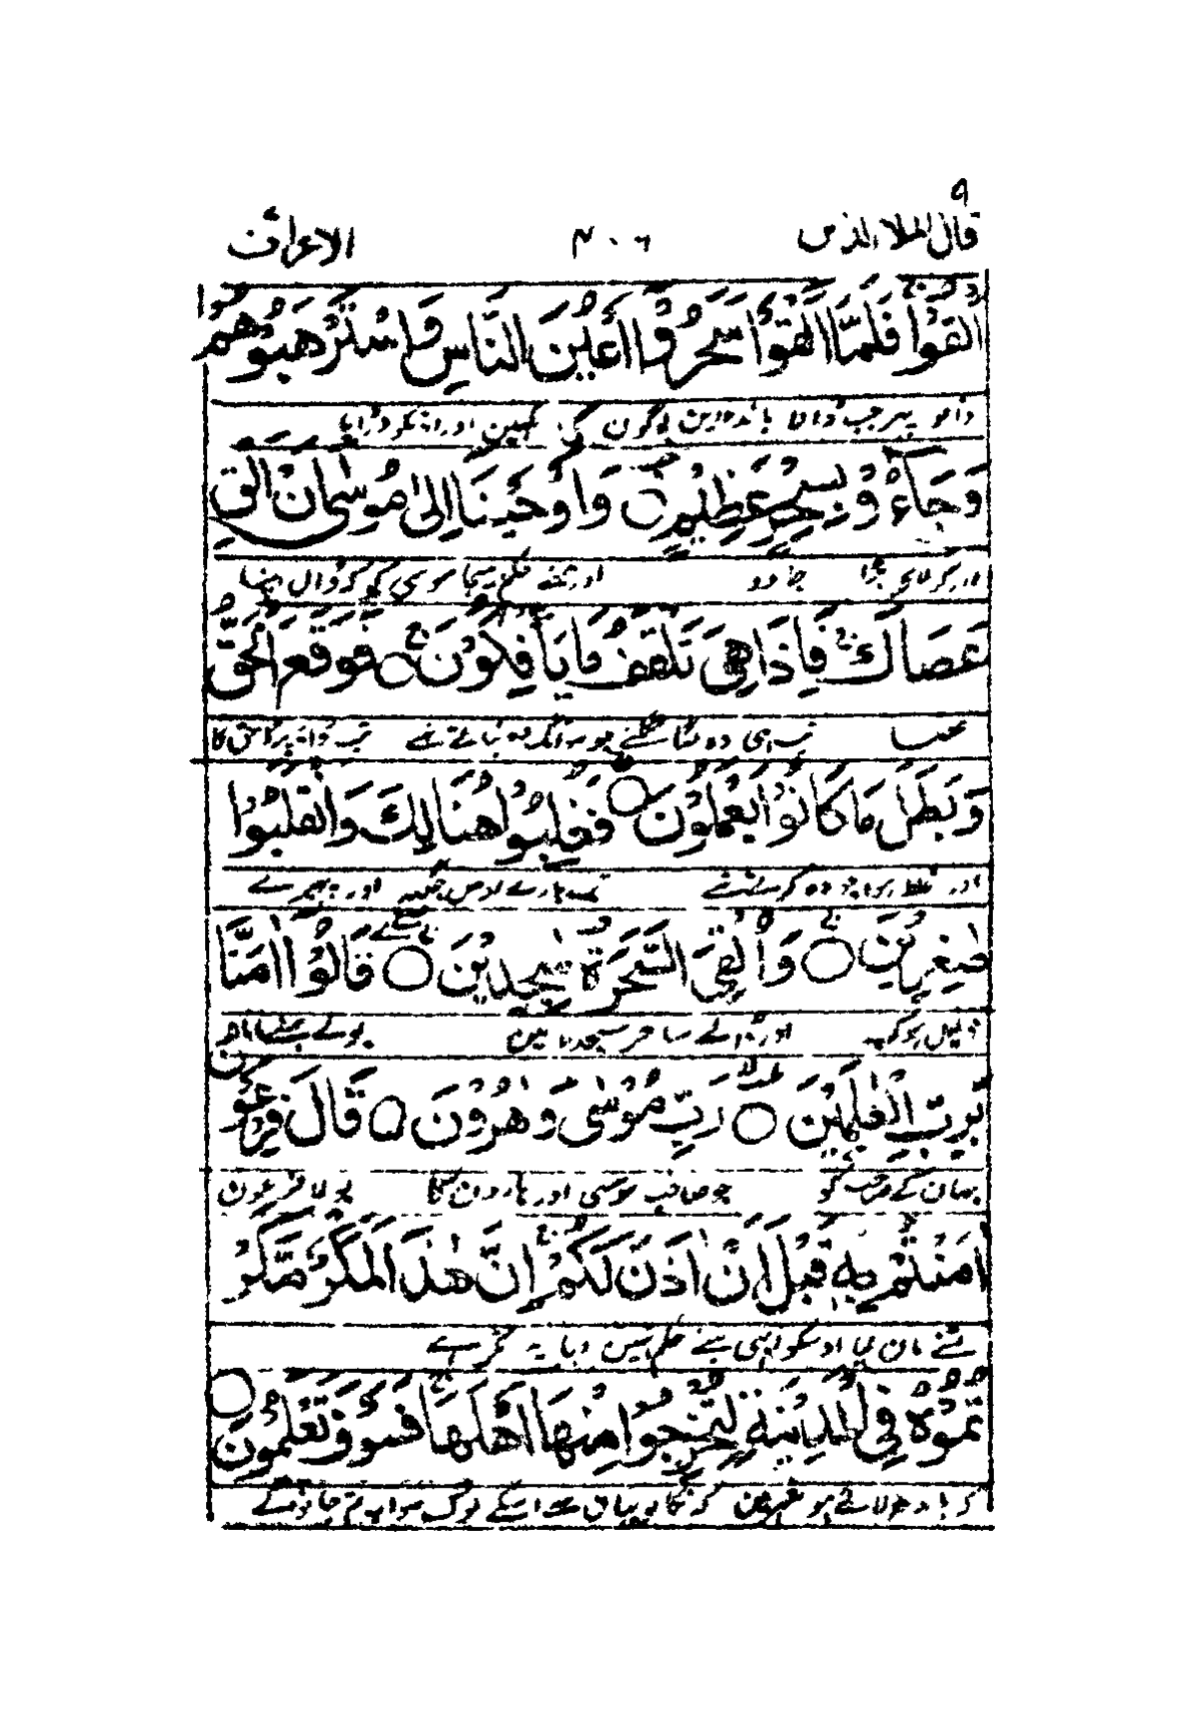 ۹
قال الملاء الذين ۴۰۶ الاعراف
اَلْقُوْا فَلَمَّا اَلْقَوْا سَحَرُوْا اَعْيُنَ النَّاسِ وَاسْتَرْهَبُوْهُمْ
ڈالو پہر جب ڈالا باندہ دین لوگون کی اور انکو ڈرایا
وَجَآءُوْ بِسِحْرٍ عَظِيْمٍ وَاَوْحَيْنَا اِلٰى مُوْسٰى اَنْ اَلْقِ
اور کر لائے بڑا جادو اور ہمنے حکم بہیجا موسی کو کہ ڈال اپنا
عَصَاكَ ج فَاِذَا هِىَ تَلْقَفُ مَا يَاْفِكُوْنَ ج فَوَقَعَ الْحَقُّ
عصا تب ہی وہ لگا نگلنے جو سانگ وہ بناتے تہے تب حق کا
وَبَطَلَ مَا كَانُوْا يَعْمَلُوْنَ فَغُلِبُوْا هُنَالِكَ وَانْقَلَبُوْا
اور غلط ہوا جو وہ کرتے تہے تب ہارے اوس جگہہ اور پہرے
صٰغِرِيْنَ ج وَاُلْقِىَ السَّحَرَةُ سٰجِدِيْنَ ج قَالُوْا اٰمَنَّا
ذلیل ہوکر اور ڈالے ساحر سجدہ مین بولے ہمنے مانا
بِرَبِّ الْعٰلَمِيْنَ رَبِّ مُوْسٰى وَهٰرُوْنَ قَالَ فِرْعَوْنُ
جہان کے صاحب کو جو صاحب موسی اور ہارون کا بولا فرعون
اٰمَنْتُمْ بِهٖ قَبْلَ اَنْ اٰذَنَ لَكُمْ ج اِنَّ هٰذَا لَمَكْرٌ مَّكَرْ
تمنے مان لیا اوسکو ابہی مینے حکم نہین دیا یہ مکر ہے
تُمُوْهُ فِى الْمَدِيْنَةِ لِتُخْرِجُوْا مِنْهَا اَهْلَهَا ج فَسَوْفَ تَعْلَمُوْنَ
کہ لائے ہو شہر مین کہ نکالو یہان سے اسکے لوگ سو اب تم جانوگے